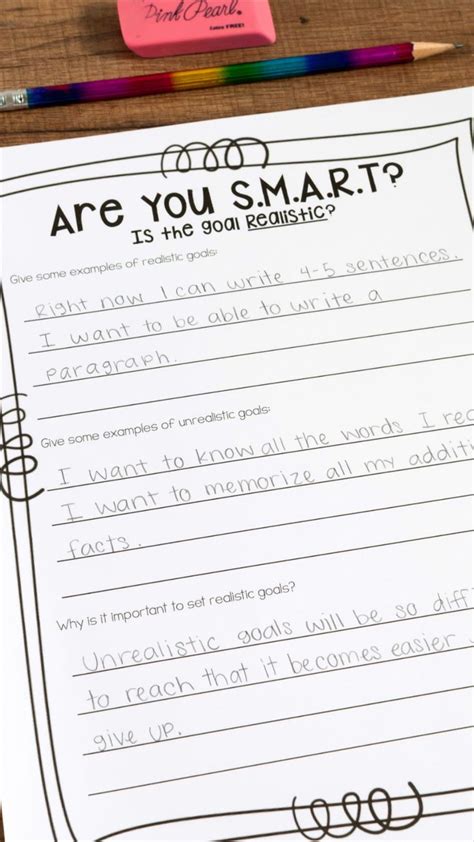 Pink Pearl.
Extra FREE!
Are You S.M.A.R.T?
Is the goal Realistic?
Give some examples of realistic goals:
Right now I can write 4-5 sentences.
I want to be able to write a
paragraph.
Give some examples of unrealistic goals:
I want to know all the words I rec
I want to memorize all my additi
facts.
Why is it important to set realistic goals?
Unrealistic goals will be so diff
to reach that it becomes easier
give up.